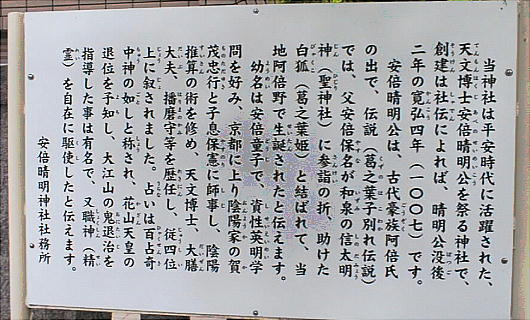 当神社は平安時代に活躍された、
天文博士安倍晴明公を祭る神社で、
創建は社伝によれば、晴明公没後
二年の寛弘四年(一〇〇七)です。
安倍晴明公は、古代豪族阿倍氏
の出で、伝説(葛之葉子別れ伝説)
では、父安倍保名が和泉の信太明
神(聖神社)に参詣の折、助けた
白狐(葛之葉姫)と結ばれて、当
地阿倍野で生誕されたと伝えます。
幼名は安倍童子で、資性英明学
問を好み、京都に上り陰陽家の賀
茂忠行と子息保憲に師事し、陰陽
推算の術を修め、天文博士、大膳
大夫、播磨守等を歴任し、従四位
上に叙されました。占いは百占奇
中神の如しと称され、花山天皇の
退位を予知し、大江山の鬼退治を
指導した事は有名で、又職神(精
霊)を自在に駆使したと伝えます。
安倍晴明神社社務所